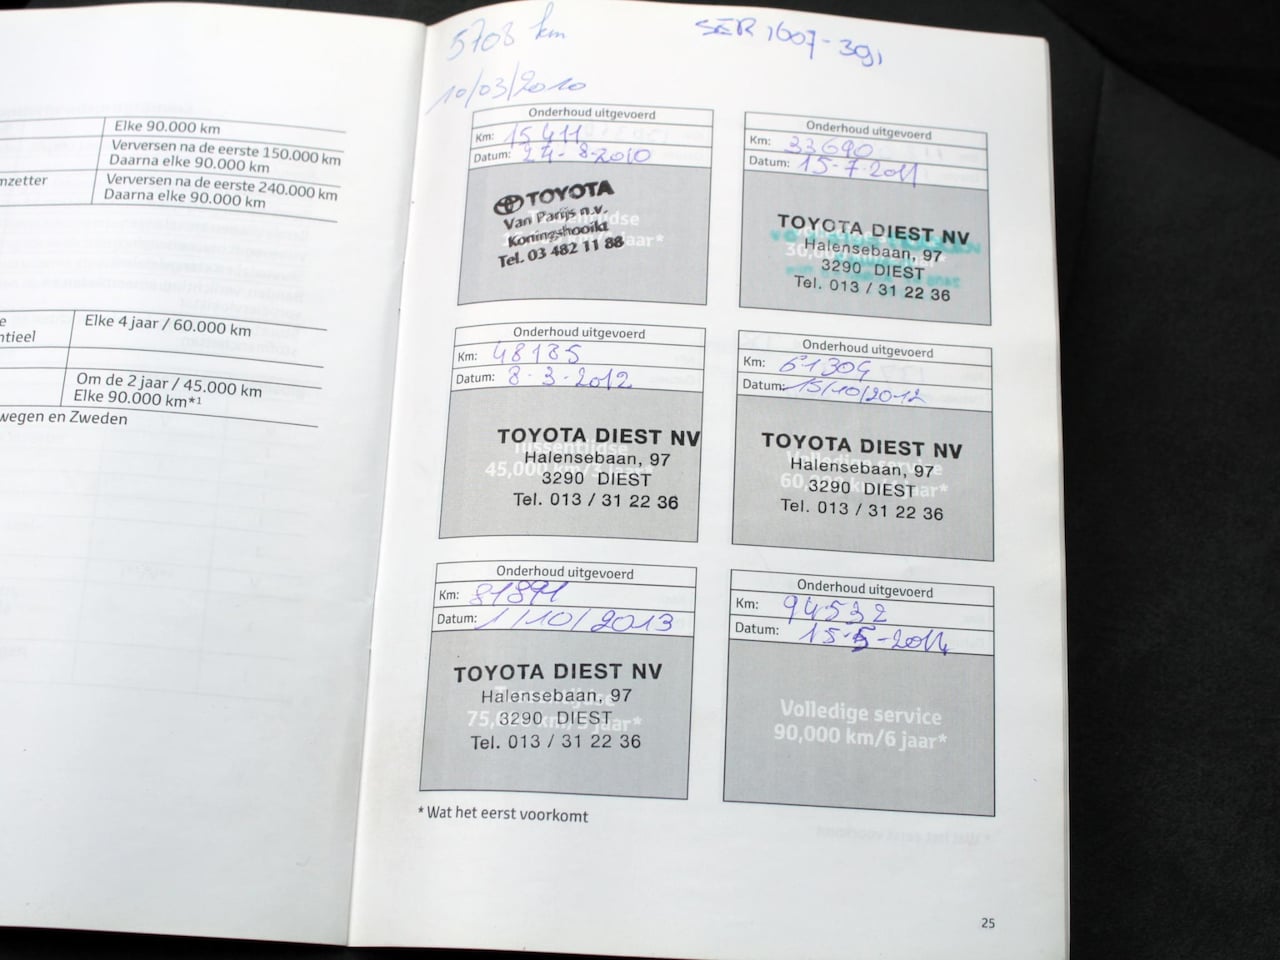 Elke 90.000 km
Verversen na de eerste 150.000 km
Daarna elke 90.000 km
nzetter
Verversen na de eerste 240.000 km
Daarna elke 90.000 km
e
ntieel
Elke 4 jaar / 60.000 km
Om de 2 jaar / 45.000 km
Elke 90.000 km*1
wegen en Zweden
5708 km
SER 1607-391
10/03/2010
Onderhoud uitgevoerd
Km: 15411
Datum: 24-8-2010
TOYOTA
Van Parijs n.v.
Koningshooikt
Tel. 03 482 11 88
jaar*
Onderhoud uitgevoerd
Km: 33690
Datum: 15-7-2011
TOYOTA DIEST NV
Halensebaan, 97
3290 DIEST
Tel. 013 / 31 22 36
30,000
Onderhoud uitgevoerd
Km: 48185
Datum: 8-3-2012
TOYOTA DIEST NV
Tussentijdse
Halensebaan, 97
45,000 km/3 jaar*
3290 DIEST
Tel. 013 / 31 22 36
Onderhoud uitgevoerd
Km: 61304
Datum: 15/10/2012
TOYOTA DIEST NV
Volledige service
Halensebaan, 97
60,000 km/4 jaar*
3290 DIEST
Tel. 013 / 31 22 36
Onderhoud uitgevoerd
Km: 81891
Datum: 1/10/2013
TOYOTA DIEST NV
Tussentijdse
Halensebaan, 97
75,000 km/5 jaar*
3290 DIEST
Tel. 013 / 31 22 36
Onderhoud uitgevoerd
Km: 94532
Datum: 15-5-2014
Volledige service
90,000 km/6 jaar*
* Wat het eerst voorkomt
25